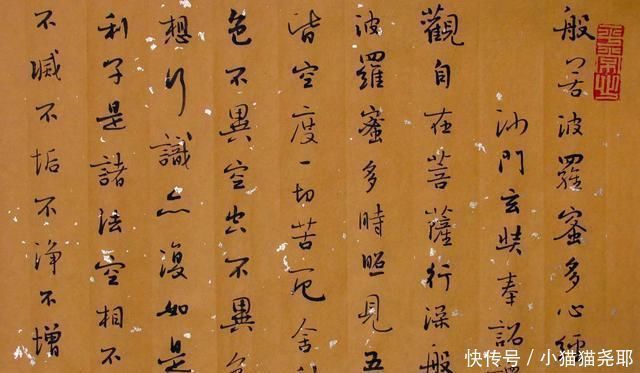 般若波羅蜜多心經
沙門玄奘奉詔
觀自在菩薩行深般
波羅蜜多時照見五
皆空度一切苦厄舍
色不異空空不異色
想行識亦復如是
利子是諸法空相不
不滅不垢不淨不增
快传号 / 小猫猫尧耶